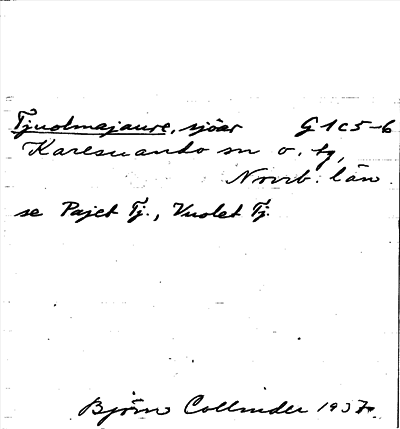 Tjuolmajaure, sjöar G1c5-6
Karesuando sn o. tg,
Norrb. län.
se Pajet Tj., Vuolet Tj.
Björn Collinder 1937.